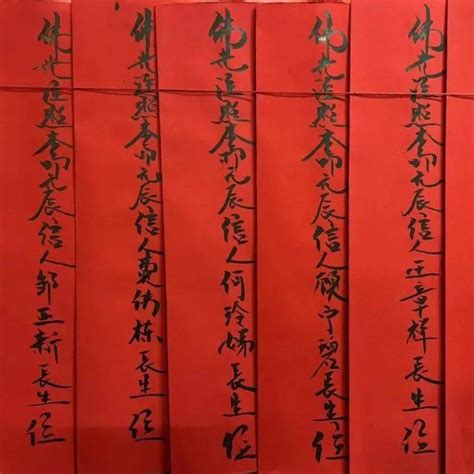 佛光注照本命元辰信人王章輝長生位
佛光注照本命元辰信人顾宁長生位
佛光注照本命元辰信人何玲娣長生位
佛光注照本命元辰信人栋長生位
佛光注照本命元辰信人邹新長生位